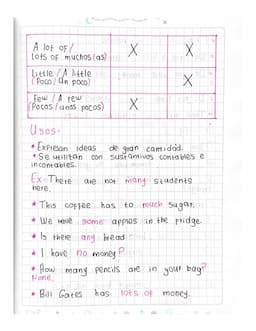 A lot of/
lots of muchos(as) X X
Little / A little
(Poco / Un poco) X
Few / A few
(Pocos / unos pocos) X
Usos-
* Expresan ideas de gran cantidad.
* Se utilizan con sustantivos contables e
incontables.
Ex- There are not many students
here.
* This coffee has to much sugar.
* We have some apples in the fridge.
* Is there any bread
* I have no money?
* How many pencils are in your bag?
None.
* Bill Gates has lots of money.